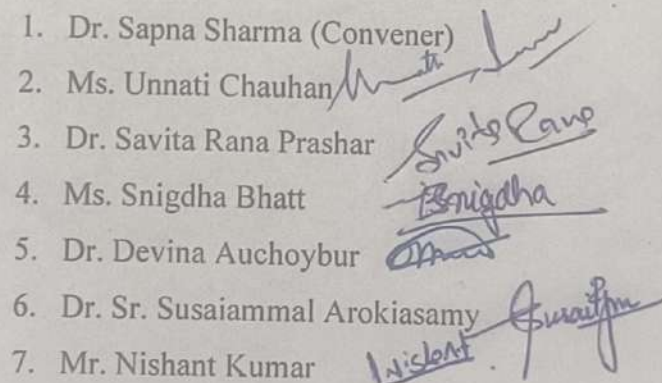 1. Dr. Sapna Sharma (Convener)
2. Ms. Unnati Chauhan
3. Dr. Savita Rana Prashar Savita Rana
4. Ms. Snigdha Bhatt Snigdha
5. Dr. Devina Auchoybur
6. Dr. Sr. Susaiammal Arokiasamy
7. Mr. Nishant Kumar Nishant